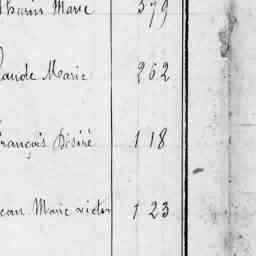 Marie 379
Claude Marie 262
François Désiré 118
Jean Marie victor 123